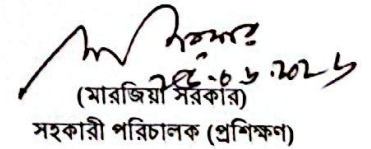 (মারজিয়া সরকার)
সহকারী পরিচালক (প্রশিক্ষণ)